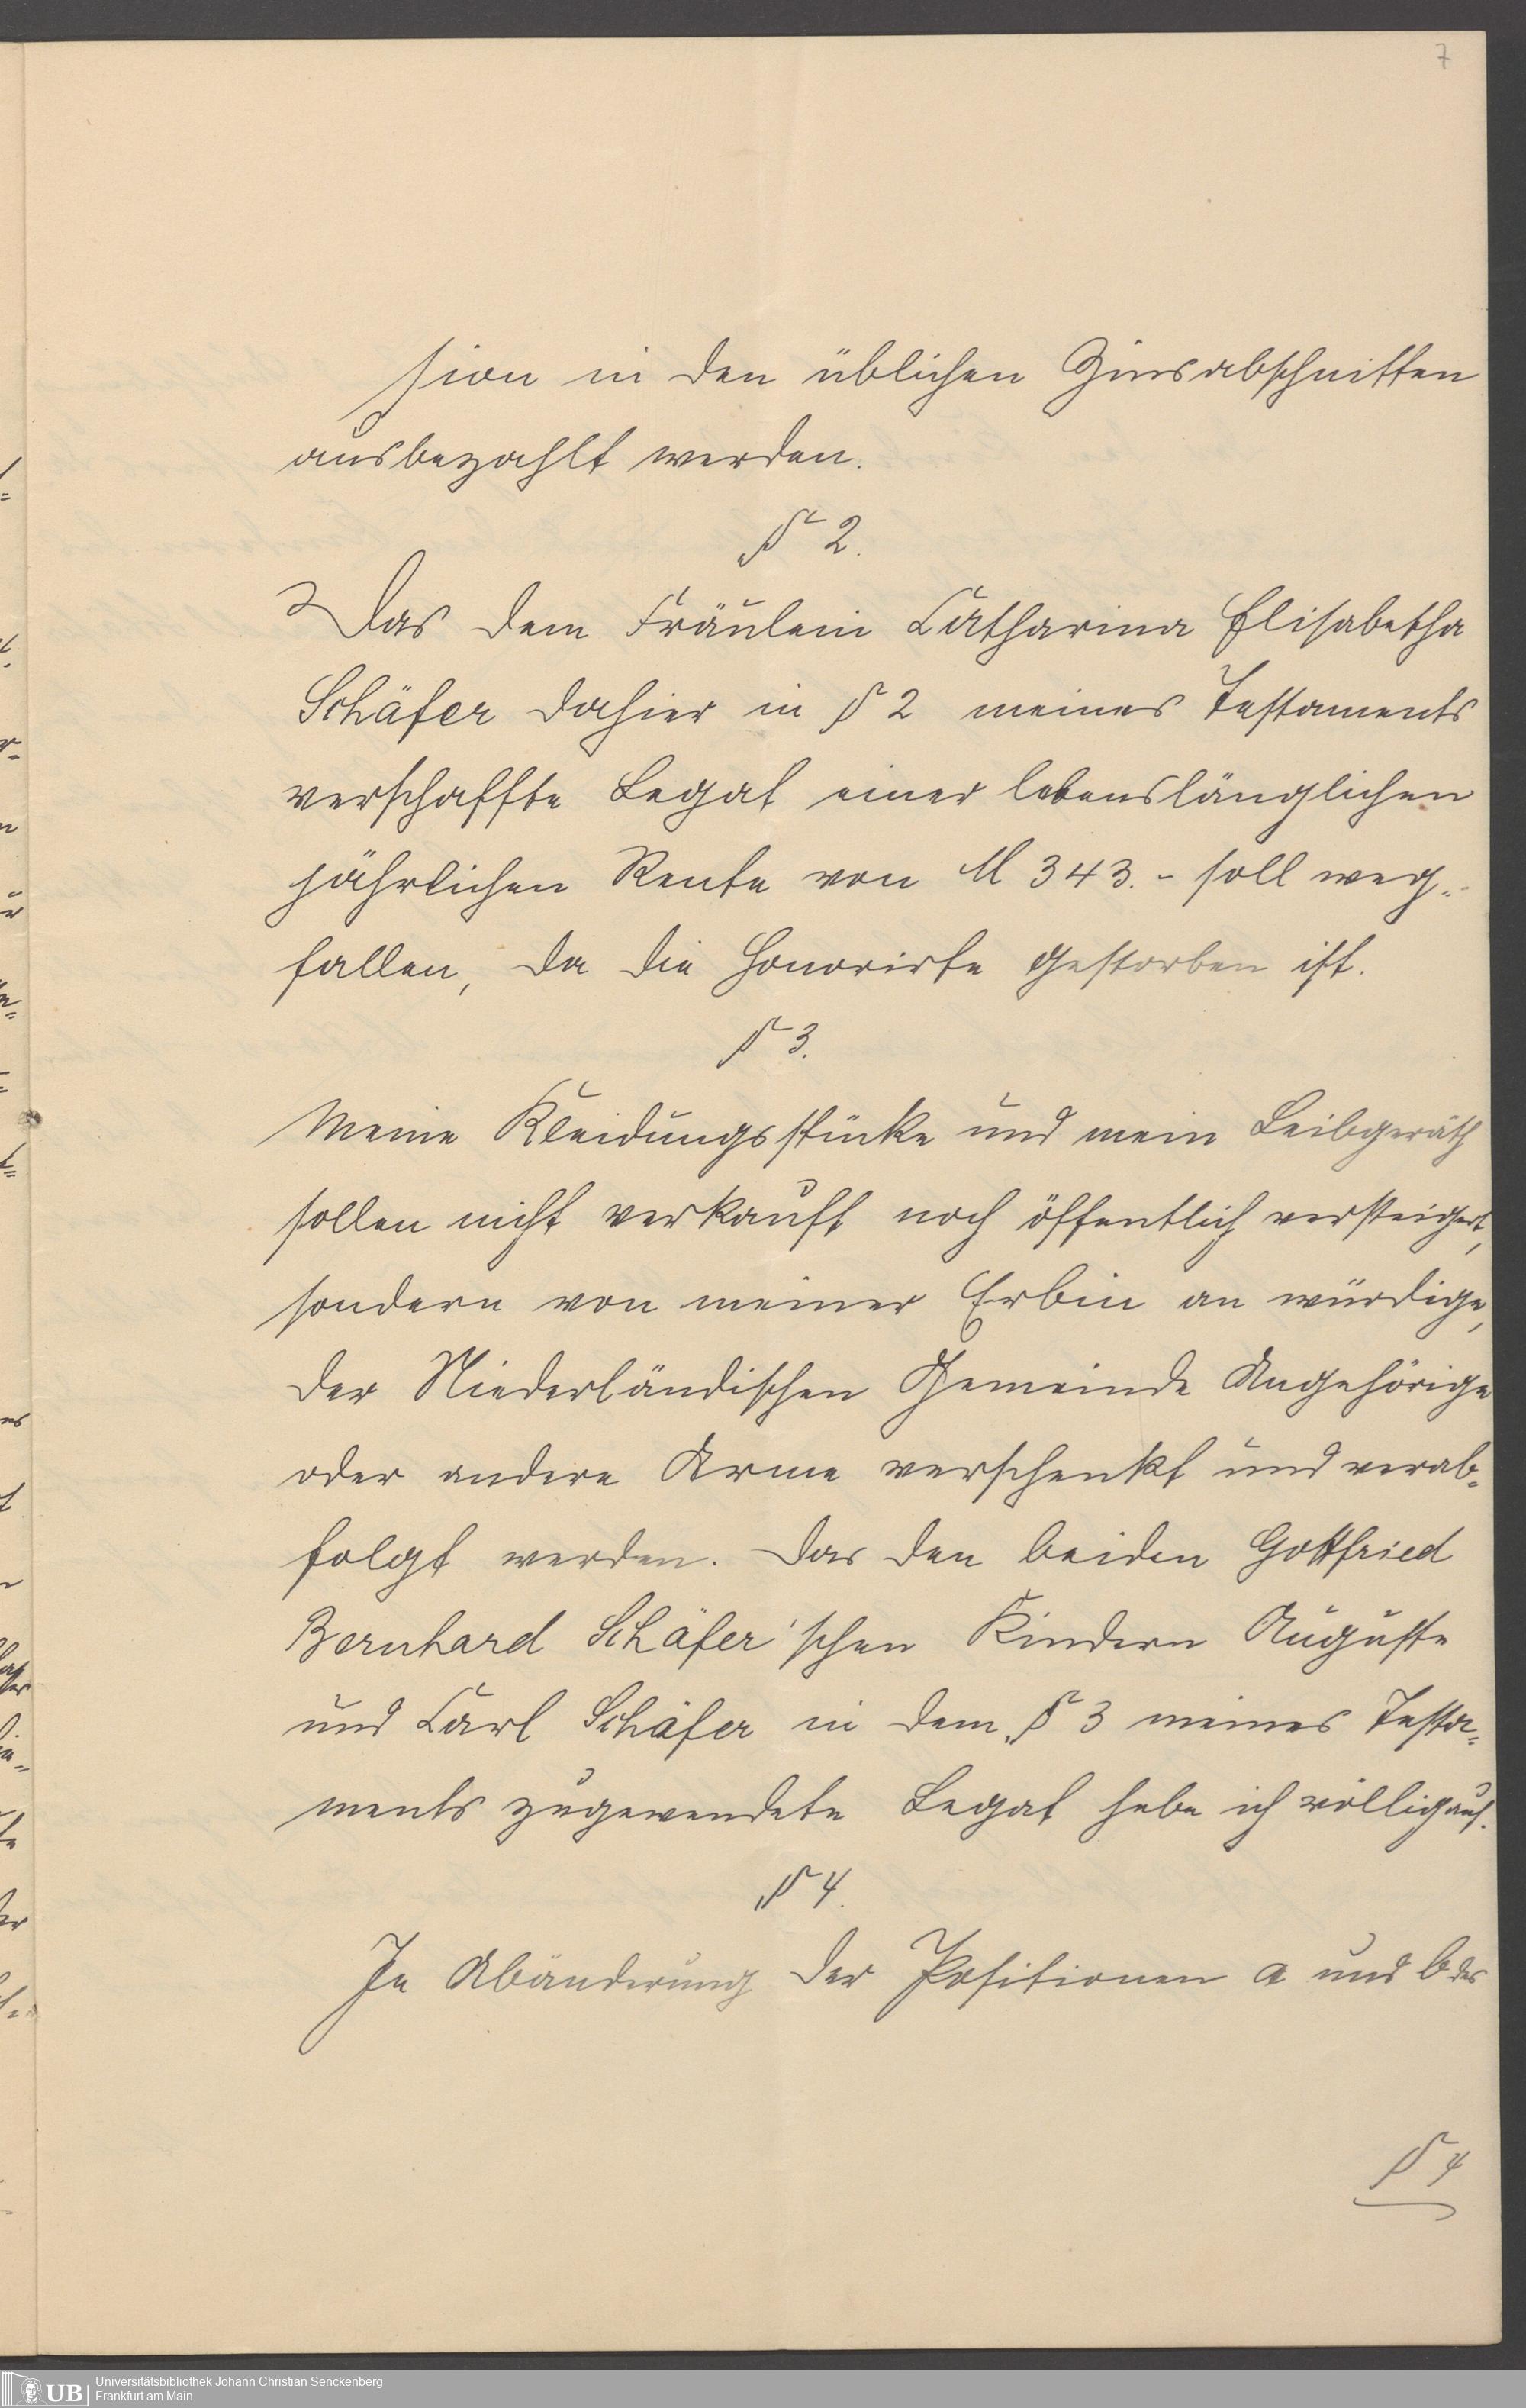 7
sion in den üblichen Zinsabschnitten
ausbezahlt werden.
§ 2.
Das dem Fräulein Catharina Elisabetha
Schäfer dahier in § 2 meines Testaments
verschaffte Legat einer lebenslänglichen
jährlichen Rente von M 343.- soll weg=
fallen, da die Honorirte gestorben ist.
§ 3.
Meine Kleidungsstücke und mein Leibgeräth
sollen nicht verkauft noch öffentlich versteigert,
sondern von meiner Erbin an würdige,
der Niederländischen Gemeinde Angehörige
oder andere Arme verschenkt und verab=
folgt werden. Das den beiden Gottfried
Bernhard Schäfer'schen Kindern Auguste
und Carl Schäfer in dem § 3 meines Testa=
ments zugewendete Legat hebe ich völlig auf.
§ 4.
In Abänderung der Positionen a und b des
§ 4
UB
Universitätsbibliothek Johann Christian Senckenberg
Frankfurt am Main